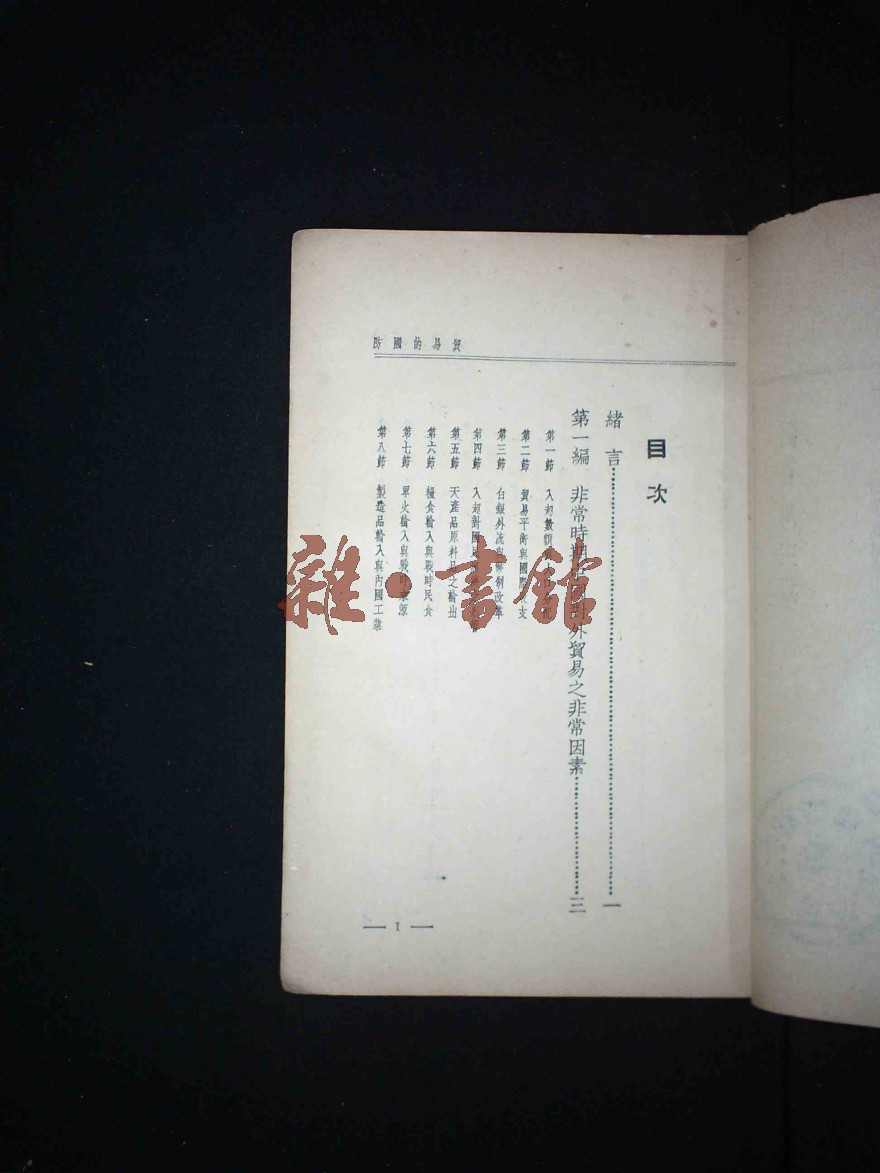 防國的易貿
目次
緒言………一
第一編 非常時期 國對外貿易之非常因素………三
第一節 入超數額
第二節 貿易平衡與國際 支
第三節 白銀外流與幣制改革
第四節 入超對國民
第五節 天產品原料品之輸出
第六節 糧食輸入與戰時民食
第七節 軍火輸入與戰時來源
第八節 製造品輸入與內國工業
— 1 —
雜·書館